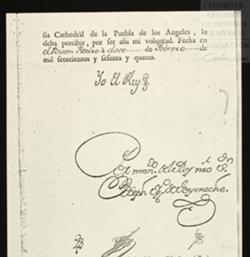 sia Cathedral de la Puebla de los Angeles, lo
deba percibir, por ser assi mi voluntad. Fecha en
el Buen Retiro à doce de Febrero de
mil setecientos y sesenta y quatro.
Yo El Rey
Por man.do del Rey nro S.or
Joseph de Goyeneche.